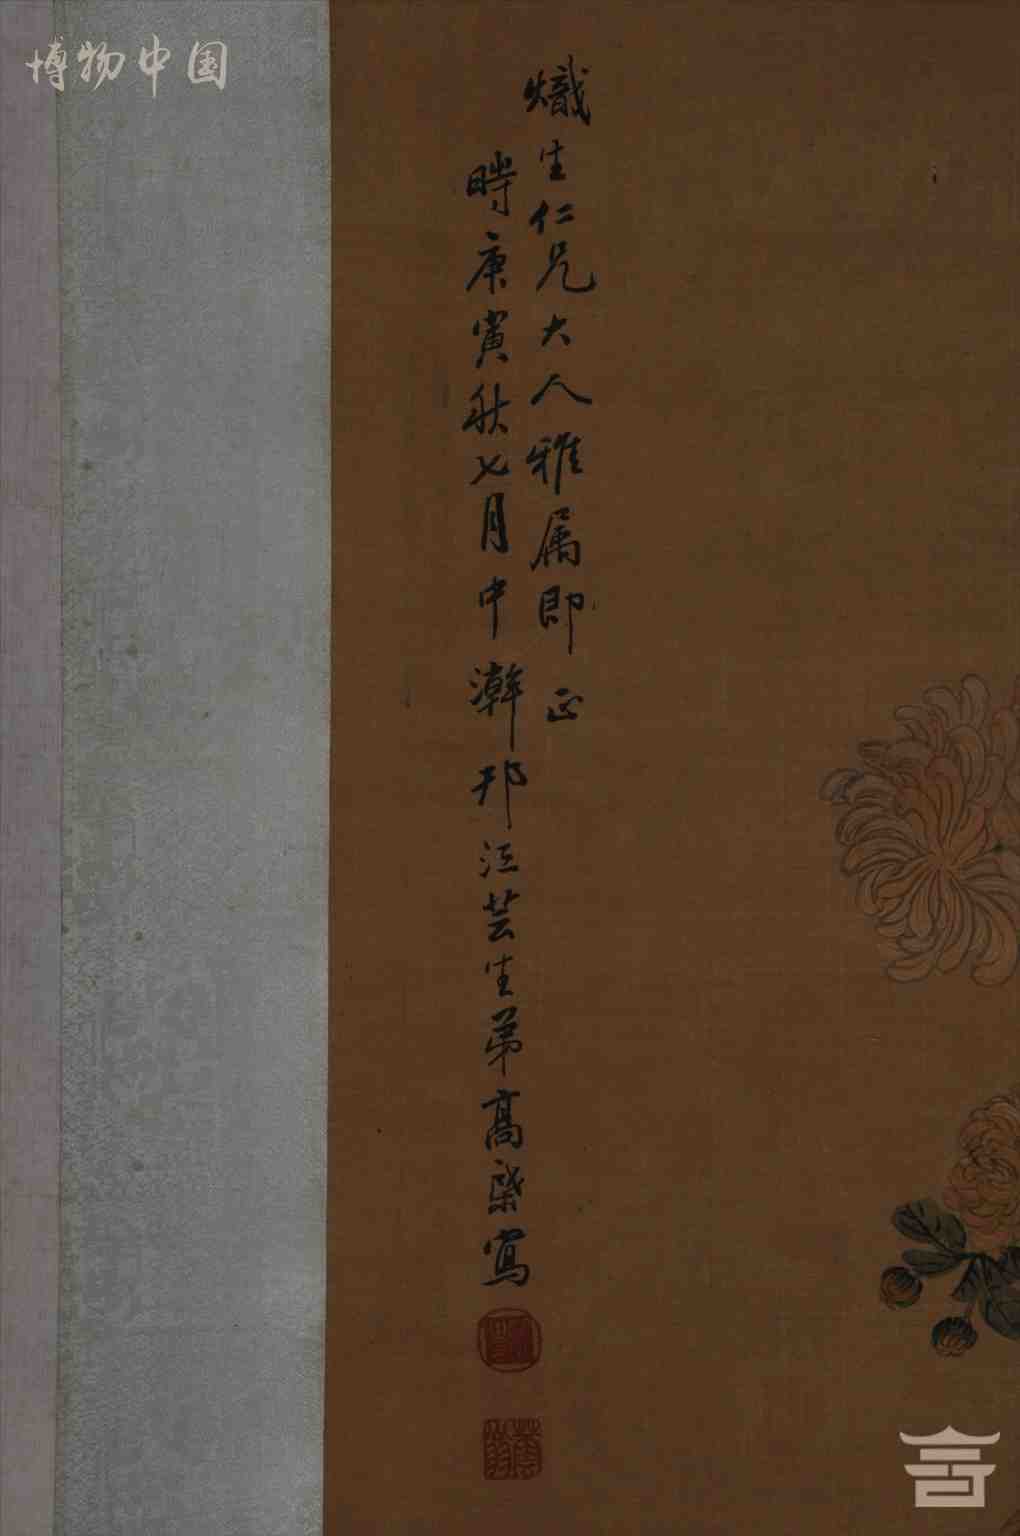 博物中国
熾生仁兄大人雅属即正
時庚寅秋七月中澣邗江芸生弟高棨寫